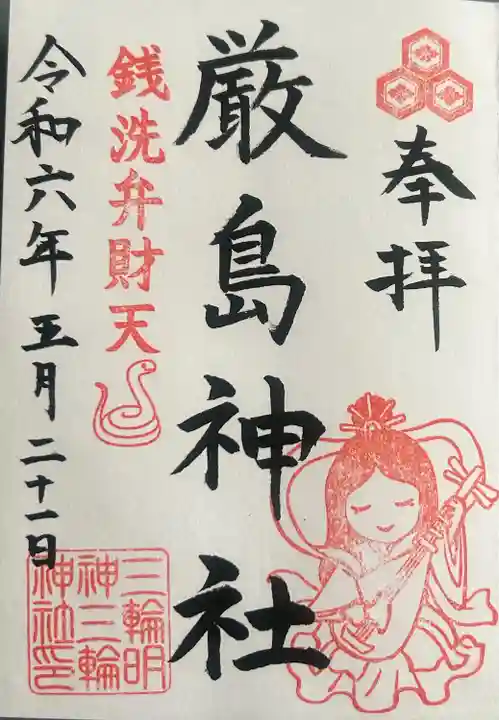 奉拝
厳島神社
銭洗弁財天
令和六年五月二十一日
三輪明
神三輪
神社印